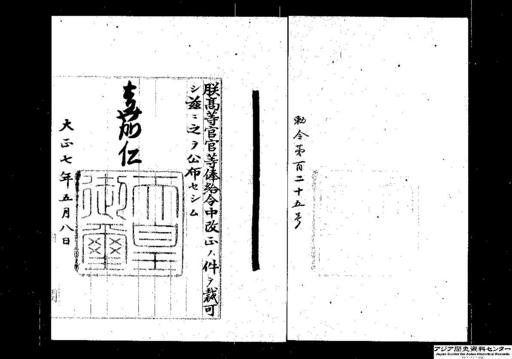 勅令第百二十五号
朕高等官官等俸給令中改正ノ件ヲ裁可
シ茲ニ之ヲ公布セシム
嘉仁
天皇御璽
大正七年五月八日
アジア歴史資料センター
Japan Center for Asian Historical Records